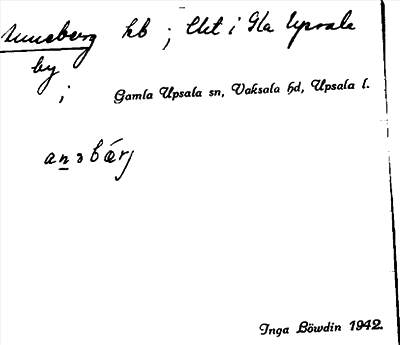 Anneberg hb ; Utt i Gla Upsala
by
;
Gamla Upsala sn, Vaksala hd, Upsala l.
anəbærj
Inga Löwdin 1942.